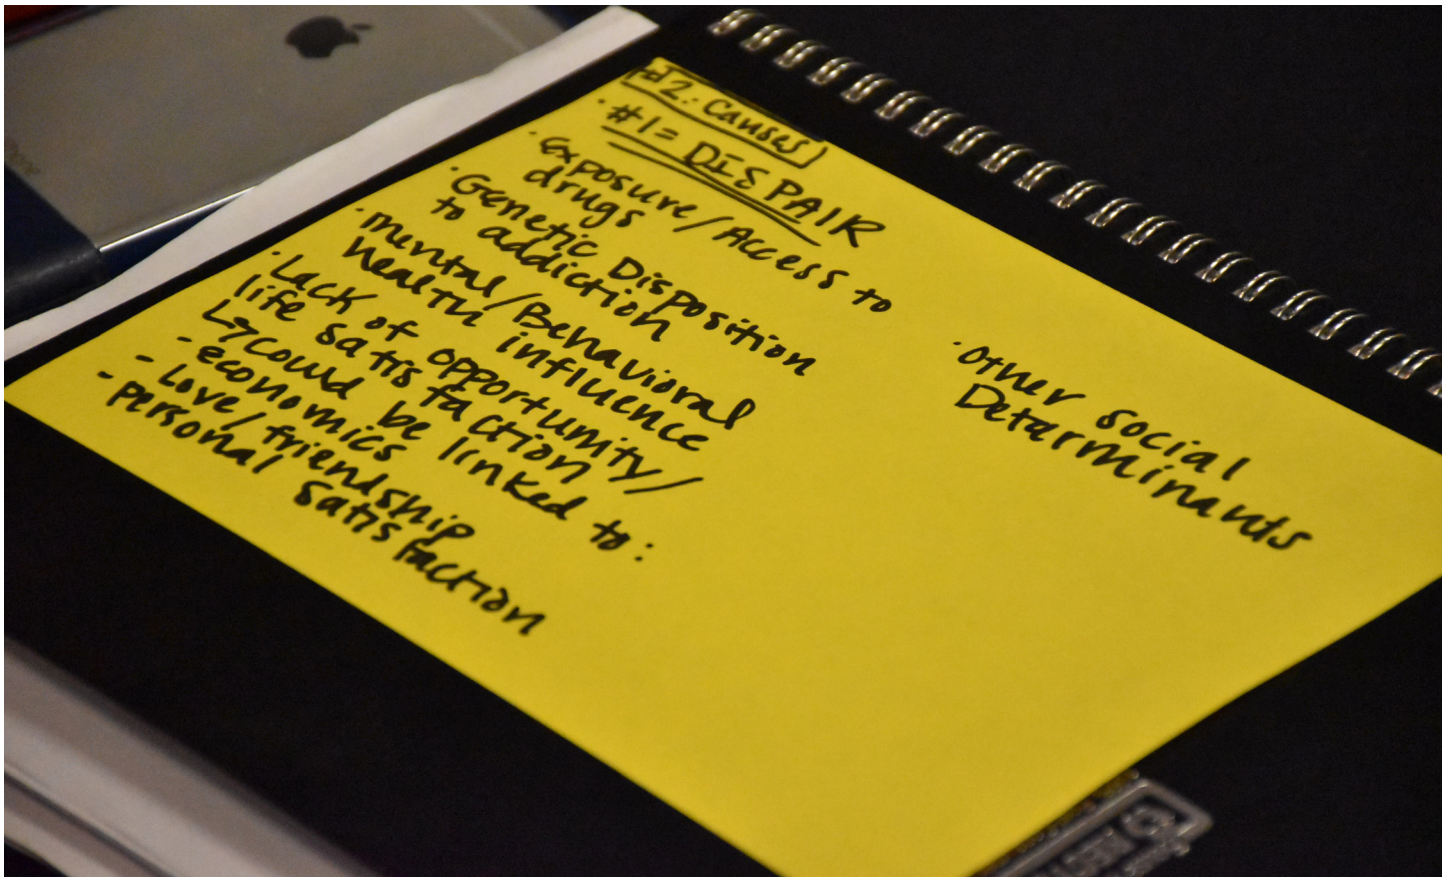 2: Causes
· #1 = DISPAIR
· Exposure/Access to
drugs
· Genetic Disposition
to addiction
· mental/Behavioral
Health influence
· Lack of opportunity/
life satisfaction/
↳ could be linked to:
- economics
- Love/friendship
- personal satisfaction
· Other social
Determinants